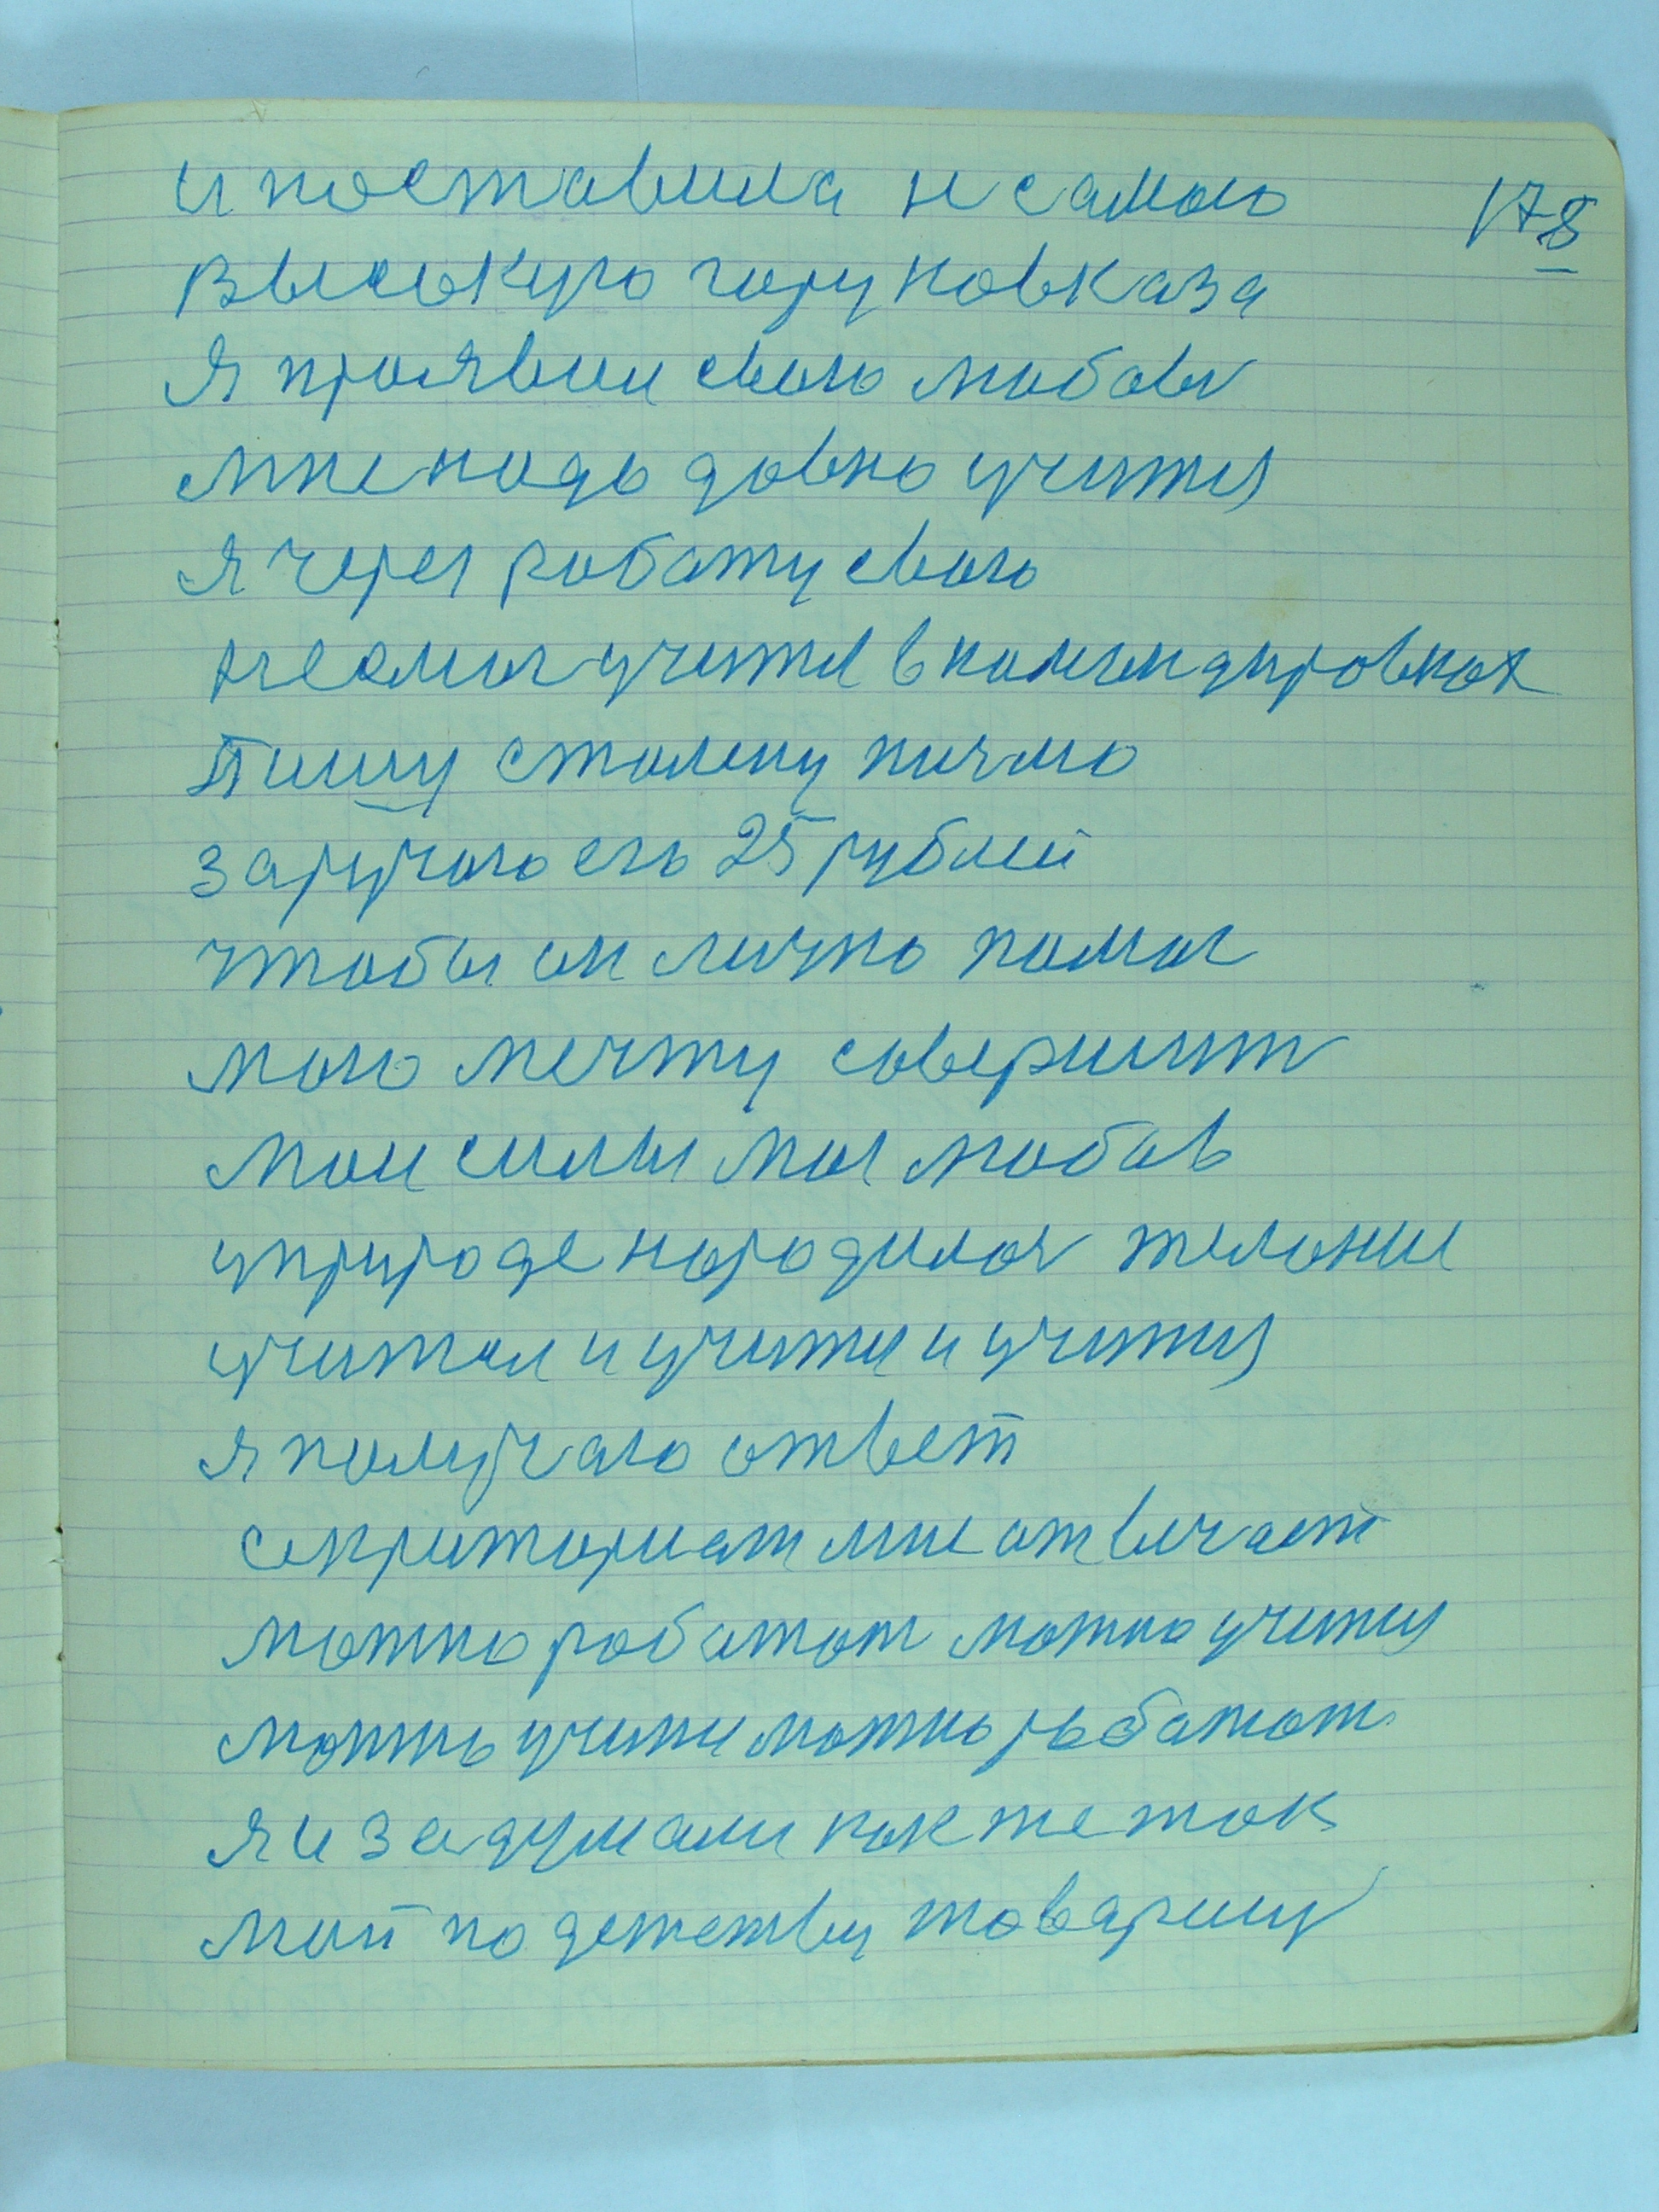 и поставила н самою
178
высокую гору Ковказа
Я проявил свою любовь
мне надо довно учится
Я через работу свою
несмог учитсе в комендировках
Пишу сталену писмо
заручою его 25 рублей
чтобы он лично помог
мою мечту совершит
мои силы моя любов
уприроде народилось желоние
учитал и учитсе и учится
Я получаю ответ
секриториат мне отвечает
можно работат можно учится
можно учитсе можно работат
Я и задумали как же так
мой по детству товарищ